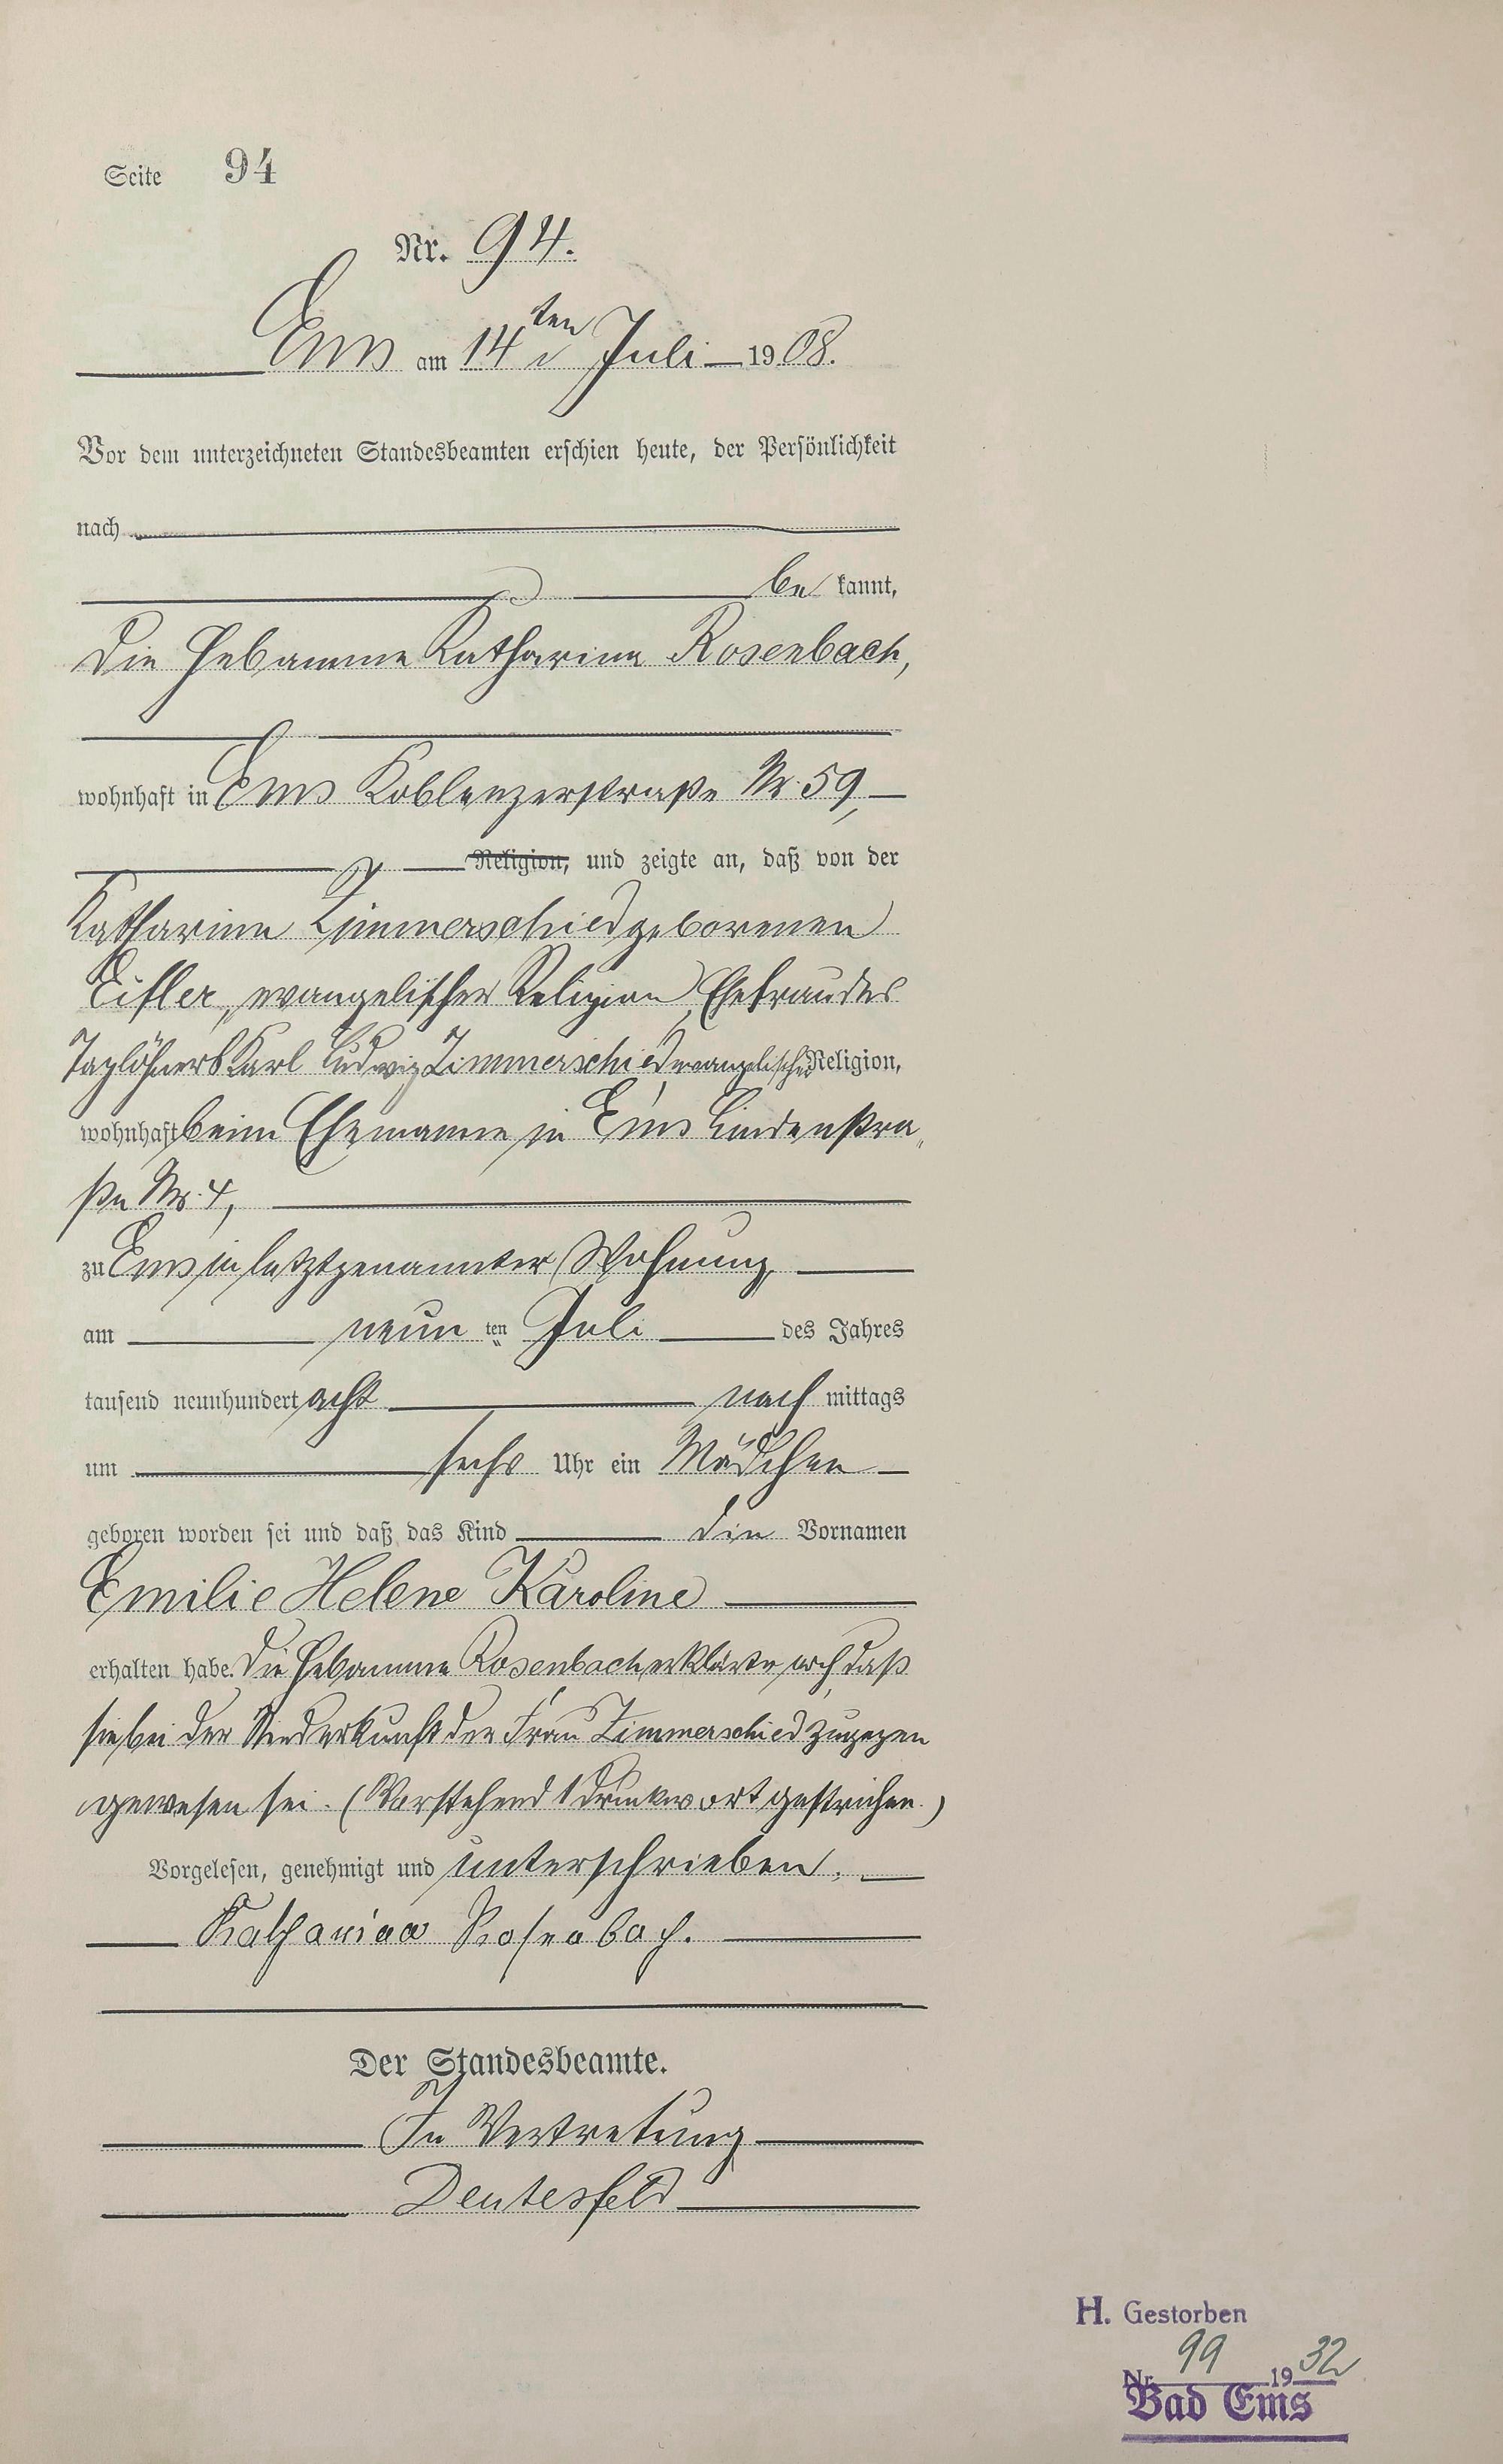 Seite 94
Nr. 94.
Ems am 14ten Juli 1908.
Vor dem unterzeichneten Standesbeamten erschien heute, der Persönlichkeit
nach
be kannt,
die Hebamme Katharina Rosenbach,
wohnhaft in Ems Koblenzerstraße Nr. 59,
Religion, und zeigte an, daß von der
Katharina Zimmerschied geborenen
Eifler, evangelischer Religion, Ehefrau des
Taglöhners Karl Ludwig Zimmerschied evangelischer Religion,
wohnhaft beim Ehemanne in Ems Lindenstra„
ße Nr. 4,
zu Ems in letztgenannter Wohnung,
am neun ten Juli des Jahres
tausend neunhundert acht nach mittags
um sechs Uhr ein Mädchen
geboren worden sei und daß das Kind die Vornamen
Emilie Helene Karoline
erhalten habe. Die Hebamme Rosenbach erklärte noch, daß
sie bei der Niederkunft der Frau Zimmerschied zugegen
gewesen sei. (Vorstehend 1 Druckwort gestrichen.)
Vorgelesen, genehmigt und unterschrieben.
Katharina Rosenbach.
Der Standesbeamte.
In Vertretung
Deutesfeld
H. Gestorben
Nr. 99 1932
Bad Ems